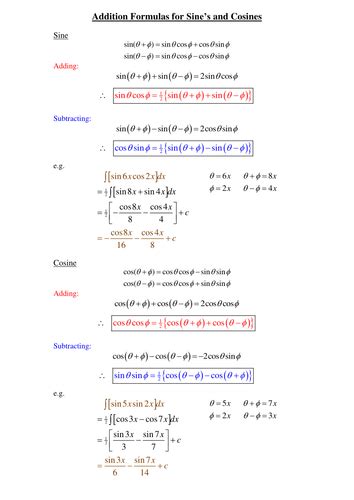 Addition Formulas for Sine's and Cosines
Sine
sin(θ + ϕ) = sin θ cos ϕ + cos θ sin ϕ
sin(θ − ϕ) = sin θ cos ϕ − cos θ sin ϕ
Adding:
sin(θ + ϕ) + sin(θ − ϕ) = 2sin θ cos ϕ
∴ sin θ cos ϕ = ½{sin(θ + ϕ) + sin(θ − ϕ)}
Subtracting:
sin(θ + ϕ) − sin(θ − ϕ) = 2cos θ sin ϕ
∴ cos θ sin ϕ = ½{sin(θ + ϕ) − sin(θ − ϕ)}
e.g.
∫[sin 6x cos 2x]dx θ = 6x θ + ϕ = 8x
= ½∫[sin 8x + sin 4x]dx ϕ = 2x θ − ϕ = 4x
= ½[− cos 8x / 8 − cos 4x / 4] + c
= − cos 8x / 16 − cos 4x / 8 + c
Cosine
cos(θ + ϕ) = cos θ cos ϕ − sin θ sin ϕ
cos(θ − ϕ) = cos θ cos ϕ + sin θ sin ϕ
Adding:
cos(θ + ϕ) + cos(θ − ϕ) = 2cos θ cos ϕ
∴ cos θ cos ϕ = ½{cos(θ + ϕ) + cos(θ − ϕ)}
Subtracting:
cos(θ + ϕ) − cos(θ − ϕ) = −2cos θ sin ϕ
∴ sin θ sin ϕ = ½{cos(θ − ϕ) − cos(θ + ϕ)}
e.g.
∫[sin 5x sin 2x]dx θ = 5x θ + ϕ = 7x
= ½∫[cos 3x − cos 7x]dx ϕ = 2x θ − ϕ = 3x
= ½[sin 3x / 3 − sin 7x / 7] + c
= sin 3x / 6 − sin 7x / 14 + c